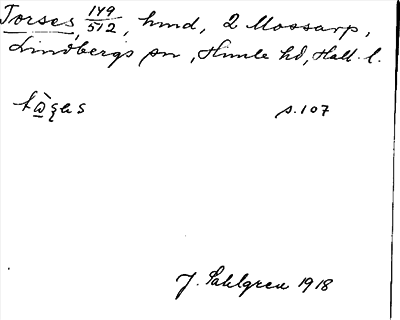 Torses, 149/512, hmd, 2 Mossarp,
Lindbergs sn, Himle hd, Hall. l.
s. 107
J. Sahlgren 1918